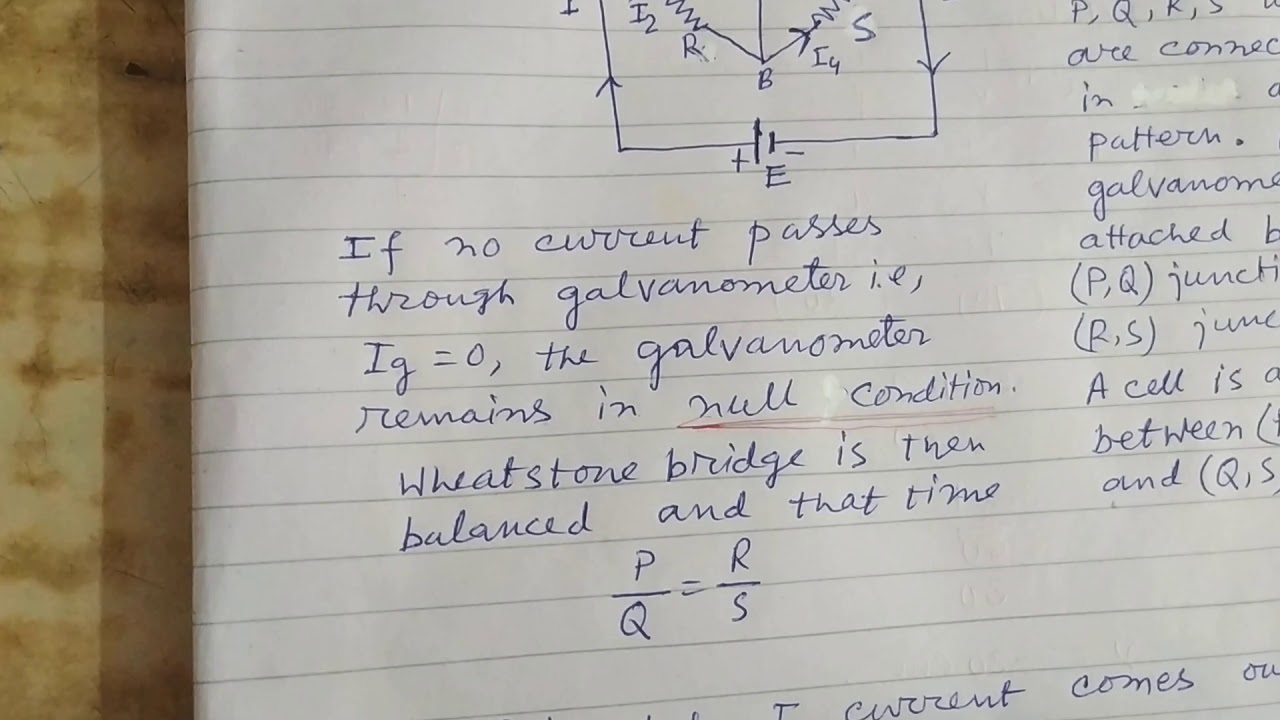 I
I2
R
S
I4
B
+
-
E
If no current passes
through galvanometer i.e,
Ig = 0, the galvanometer
remains in null condition.
Wheatstone bridge is then
balanced and that time
P/Q = R/S
P, Q, R, S
are connec
in
pattern.
galvanome
attached b
(P,Q) juncti
(R,S) junc
A cell is a
between (
and (Q,S
I current comes ou